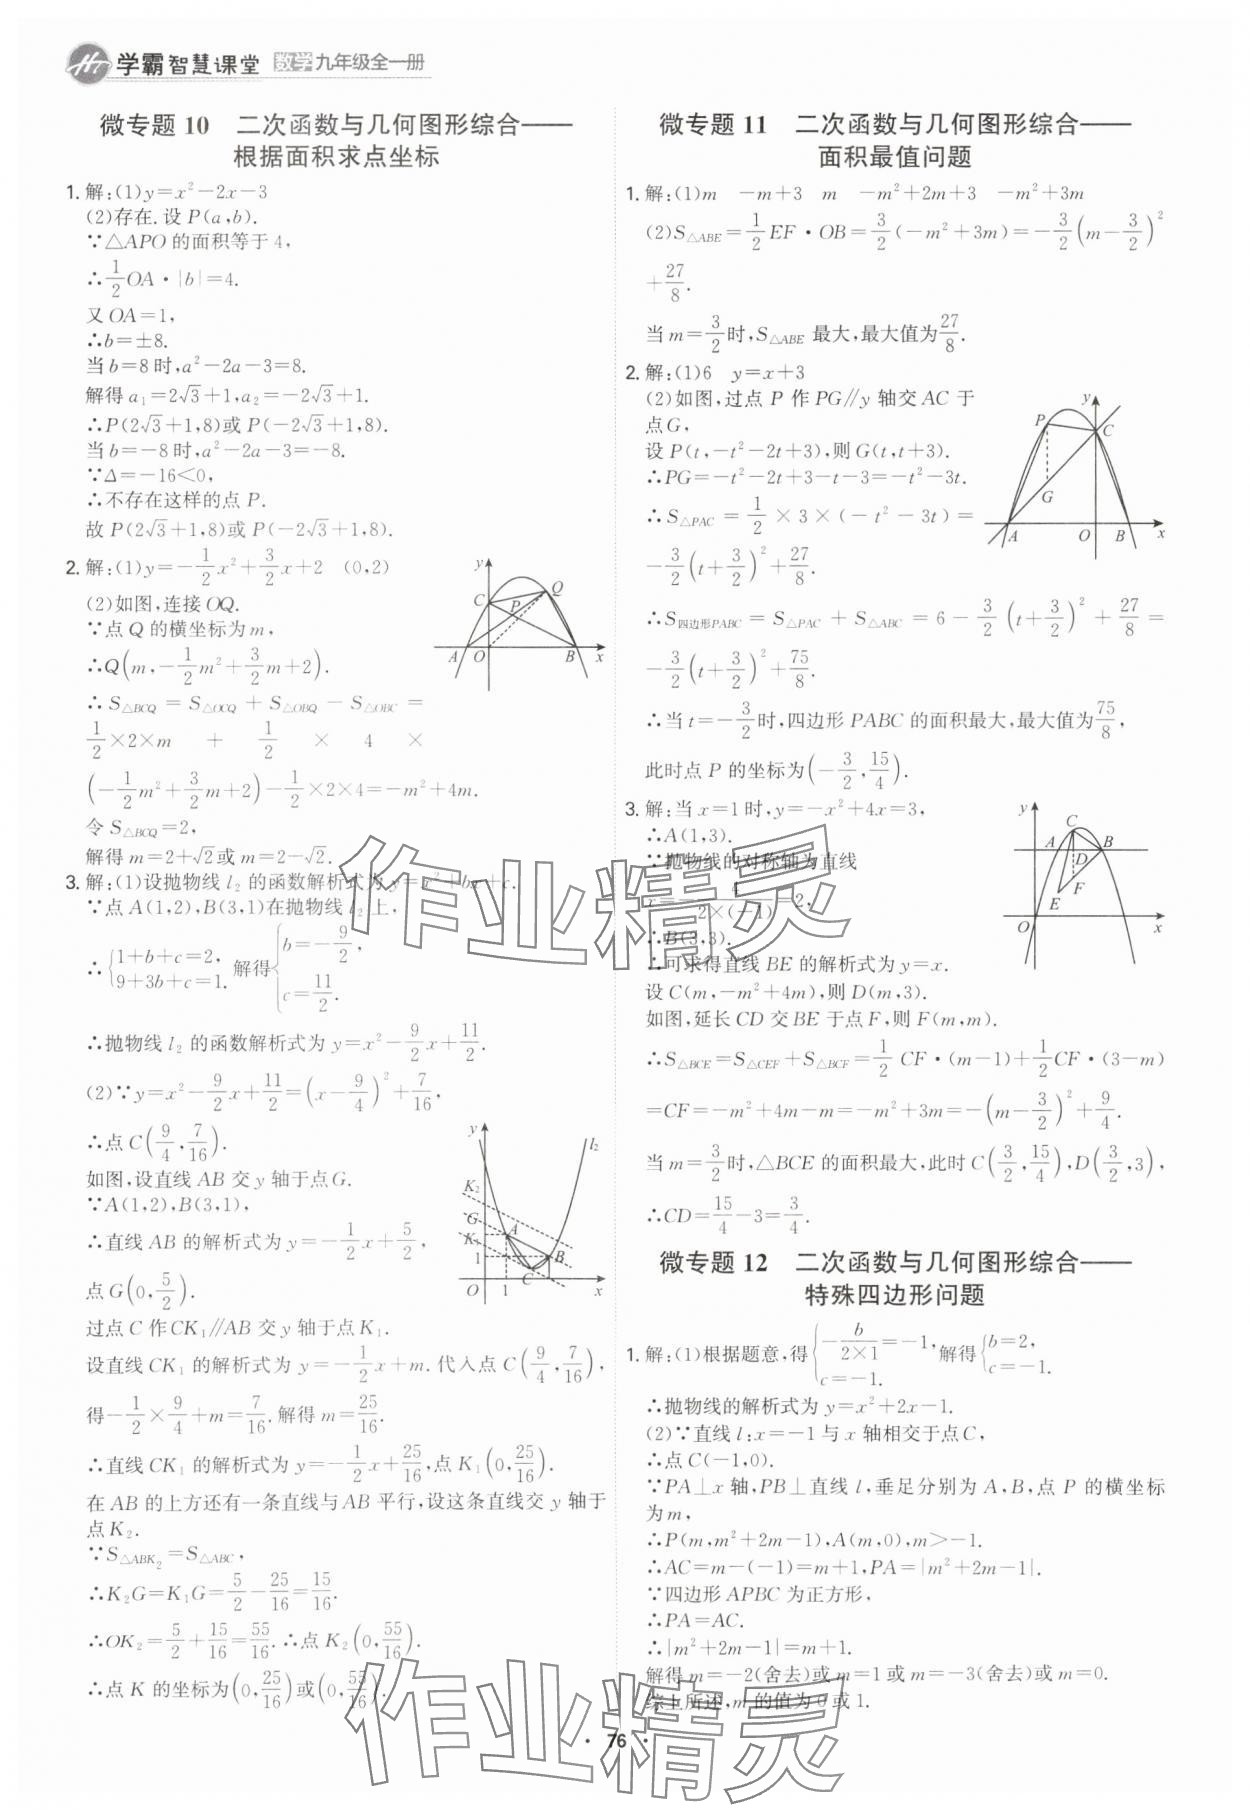 学霸智慧课堂 数学九年级全一册
微专题 10 二次函数与几何图形综合——
根据面积求点坐标
1. 解:(1)y=x²-2x-3
(2)存在. 设 P(a,b).
∵△APO 的面积等于 4,
∴1/2 OA·|b|=4.
又 OA=1,
∴b=±8.
当 b=8 时,a²-2a-3=8.
解得 a₁=2√3+1,a₂=-2√3+1.
∴P(2√3+1,8)或 P(-2√3+1,8).
当 b=-8 时,a²-2a-3=-8.
∵Δ=-16<0,
∴不存在这样的点 P.
故 P(2√3+1,8)或 P(-2√3+1,8).
2. 解:(1)y=-1/2 x²+3/2 x+2 (0,2)
(2)如图,连接 OQ.
∵点 Q 的横坐标为 m,
∴Q(m,-1/2 m²+3/2 m+2).
∴S△BCQ = S△OCQ + S△OBQ - S△OBC =
1/2×2×m + 1/2 × 4 ×
(-1/2 m²+3/2 m+2)-1/2×2×4=-m²+4m.
令 S△BCQ=2,
解得 m=2+√2或 m=2-√2.
y
C
P
Q
A
O
B
x
3. 解:(1)设抛物线 l₂ 的函数解析式为 y=x²+bx+c.
∵点 A(1,2),B(3,1)在抛物线 l₂ 上,
∴{1+b+c=2, 9+3b+c=1. 解得{b=-9/2, c=11/2.
∴抛物线 l₂ 的函数解析式为 y=x²-9/2 x+11/2.
(2)∵y=x²-9/2 x+11/2=(x-9/4)²+7/16,
∴点 C(9/4,7/16).
如图,设直线 AB 交 y 轴于点 G.
∵A(1,2),B(3,1),
∴直线 AB 的解析式为 y=-1/2 x+5/2,
点 G(0,5/2).
y
l₂
K₂
G
A
K₁
B
1
C
O
1
x
过点 C 作 CK₁∥AB 交 y 轴于点 K₁.
设直线 CK₁ 的解析式为 y=-1/2 x+m. 代入点 C(9/4,7/16),
得-1/2×9/4+m=7/16. 解得 m=25/16.
∴直线 CK₁ 的解析式为 y=-1/2 x+25/16,点 K₁(0,25/16).
在 AB 的上方还有一条直线与 AB 平行,设这条直线交 y 轴于
点 K₂.
∵S△ABK₂=S△ABC,
∴K₂G=K₁G=5/2-25/16=15/16.
∴OK₂=5/2+15/16=55/16. ∴点 K₂(0,55/16).
∴点 K 的坐标为(0,25/16)或(0,55/16).
微专题 11 二次函数与几何图形综合——
面积最值问题
1. 解:(1)m -m+3 m -m²+2m+3 -m²+3m
(2)S△ABE=1/2 EF·OB=3/2(-m²+3m)=-3/2(m-3/2)²
+27/8.
当 m=3/2时,S△ABE 最大,最大值为27/8.
2. 解:(1)6 y=x+3
(2)如图,过点 P 作 PG∥y 轴交 AC 于
点 G,
设 P(t,-t²-2t+3),则 G(t,t+3).
∴PG=-t²-2t+3-t-3=-t²-3t.
∴S△PAC = 1/2 ×3×(-t²-3t)=
-3/2(t+3/2)²+27/8.
∴S四边形PABC = S△PAC + S△ABC = 6-3/2(t+3/2)²+27/8=
-3/2(t+3/2)²+75/8.
∴当 t=-3/2时,四边形 PABC 的面积最大,最大值为75/8,
此时点 P 的坐标为(-3/2,15/4).
y
P
C
G
A
O
B
x
3. 解:当 x=1 时,y=-x²+4x=3,
∴A(1,3).
∵抛物线的对称轴为直线
x=-4/(2×(-1))=2,
∴B(3,3).
∴可求得直线 BE 的解析式为 y=x.
设 C(m,-m²+4m),则 D(m,3).
如图,延长 CD 交 BE 于点 F,则 F(m,m).
∴S△BCE=S△CEF+S△BCF=1/2 CF·(m-1)+1/2 CF·(3-m)
=CF=-m²+4m-m=-m²+3m=-(m-3/2)²+9/4.
当 m=3/2时,△BCE 的面积最大,此时 C(3/2,15/4),D(3/2,3),
∴CD=15/4-3=3/4.
y
C
A
B
D
F
E
O
x
微专题 12 二次函数与几何图形综合——
特殊四边形问题
1. 解:(1)根据题意,得{-b/(2×1)=-1, c=-1. 解得{b=2, c=-1.
∴抛物线的解析式为 y=x²+2x-1.
(2)∵直线 l:x=-1 与 x 轴相交于点 C,
∴点 C(-1,0).
∵PA⊥x 轴,PB⊥直线 l,垂足分别为 A,B,点 P 的横坐标
为 m,
∴P(m,m²+2m-1),A(m,0),m>-1.
∴AC=m-(-1)=m+1,PA=|m²+2m-1|.
∵四边形 APBC 为正方形,
∴PA=AC.
∴|m²+2m-1|=m+1.
解得 m=-2(舍去)或 m=1 或 m=-3(舍去)或 m=0.
综上所述,m 的值为 0 或 1.
· 76 ·
作业精灵
作业精灵